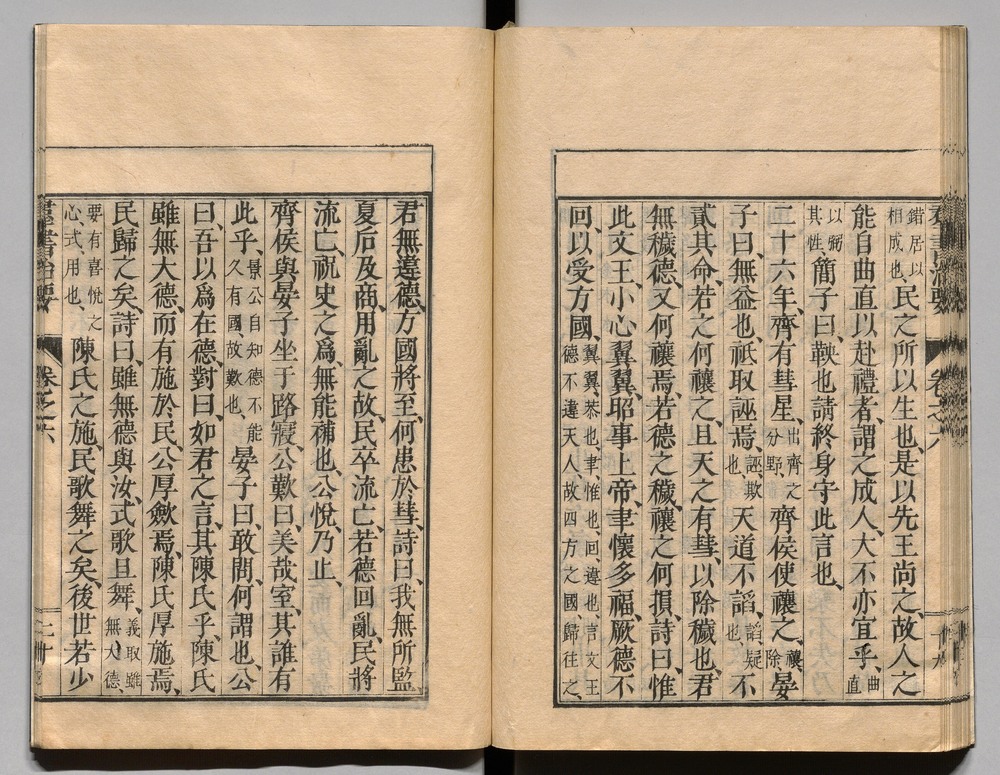 錯居以相成也民之所以生也、是以先王尚之、故人之
能自曲直以赴禮者、謂之成人、大不亦宜乎、曲直
以弼其性簡子曰、鞅也請終身守此言也、
二十六年、齊有彗星、出齊之分野、齊侯使禳之、禳、除、晏
子曰、無益也、祇取誣焉、誣、欺也、天道不謟、謟、疑也不
貳其命、若之何禳之、且天之有彗、以除穢也、君
無穢德、又何禳焉、若德之穢、禳之何損、詩曰、惟
此文王、小心翼翼、昭事上帝、聿懷多福、厥德不
回、以受方國、翼翼、恭也、聿、惟也、回、違也、言文王德不違天人、故四方之國、歸往之、
君無違德、方國將至、何患於彗、詩曰、我無所監、
夏后及商、用亂之故、民卒流亡、若德回亂、民將
流亡、祝史之爲、無能補也、公悅、乃止、
齊侯與晏子坐于路寢、公歎曰、美哉室、其誰有
此乎、景公自知德不能久有國、故歎也晏子曰、敢問何謂也、公
曰、吾以爲在德、對曰、如君之言、其陳氏乎、陳氏
雖無大德、而有施於民、公厚斂焉、陳氏厚施焉、
民歸之矣、詩曰、雖無德與汝、式歌且舞、義取雖無大德、
要有喜悅之心、式、用也、陳氏之施、民歌舞之矣、後世若少
羣書治要
卷之六
二十